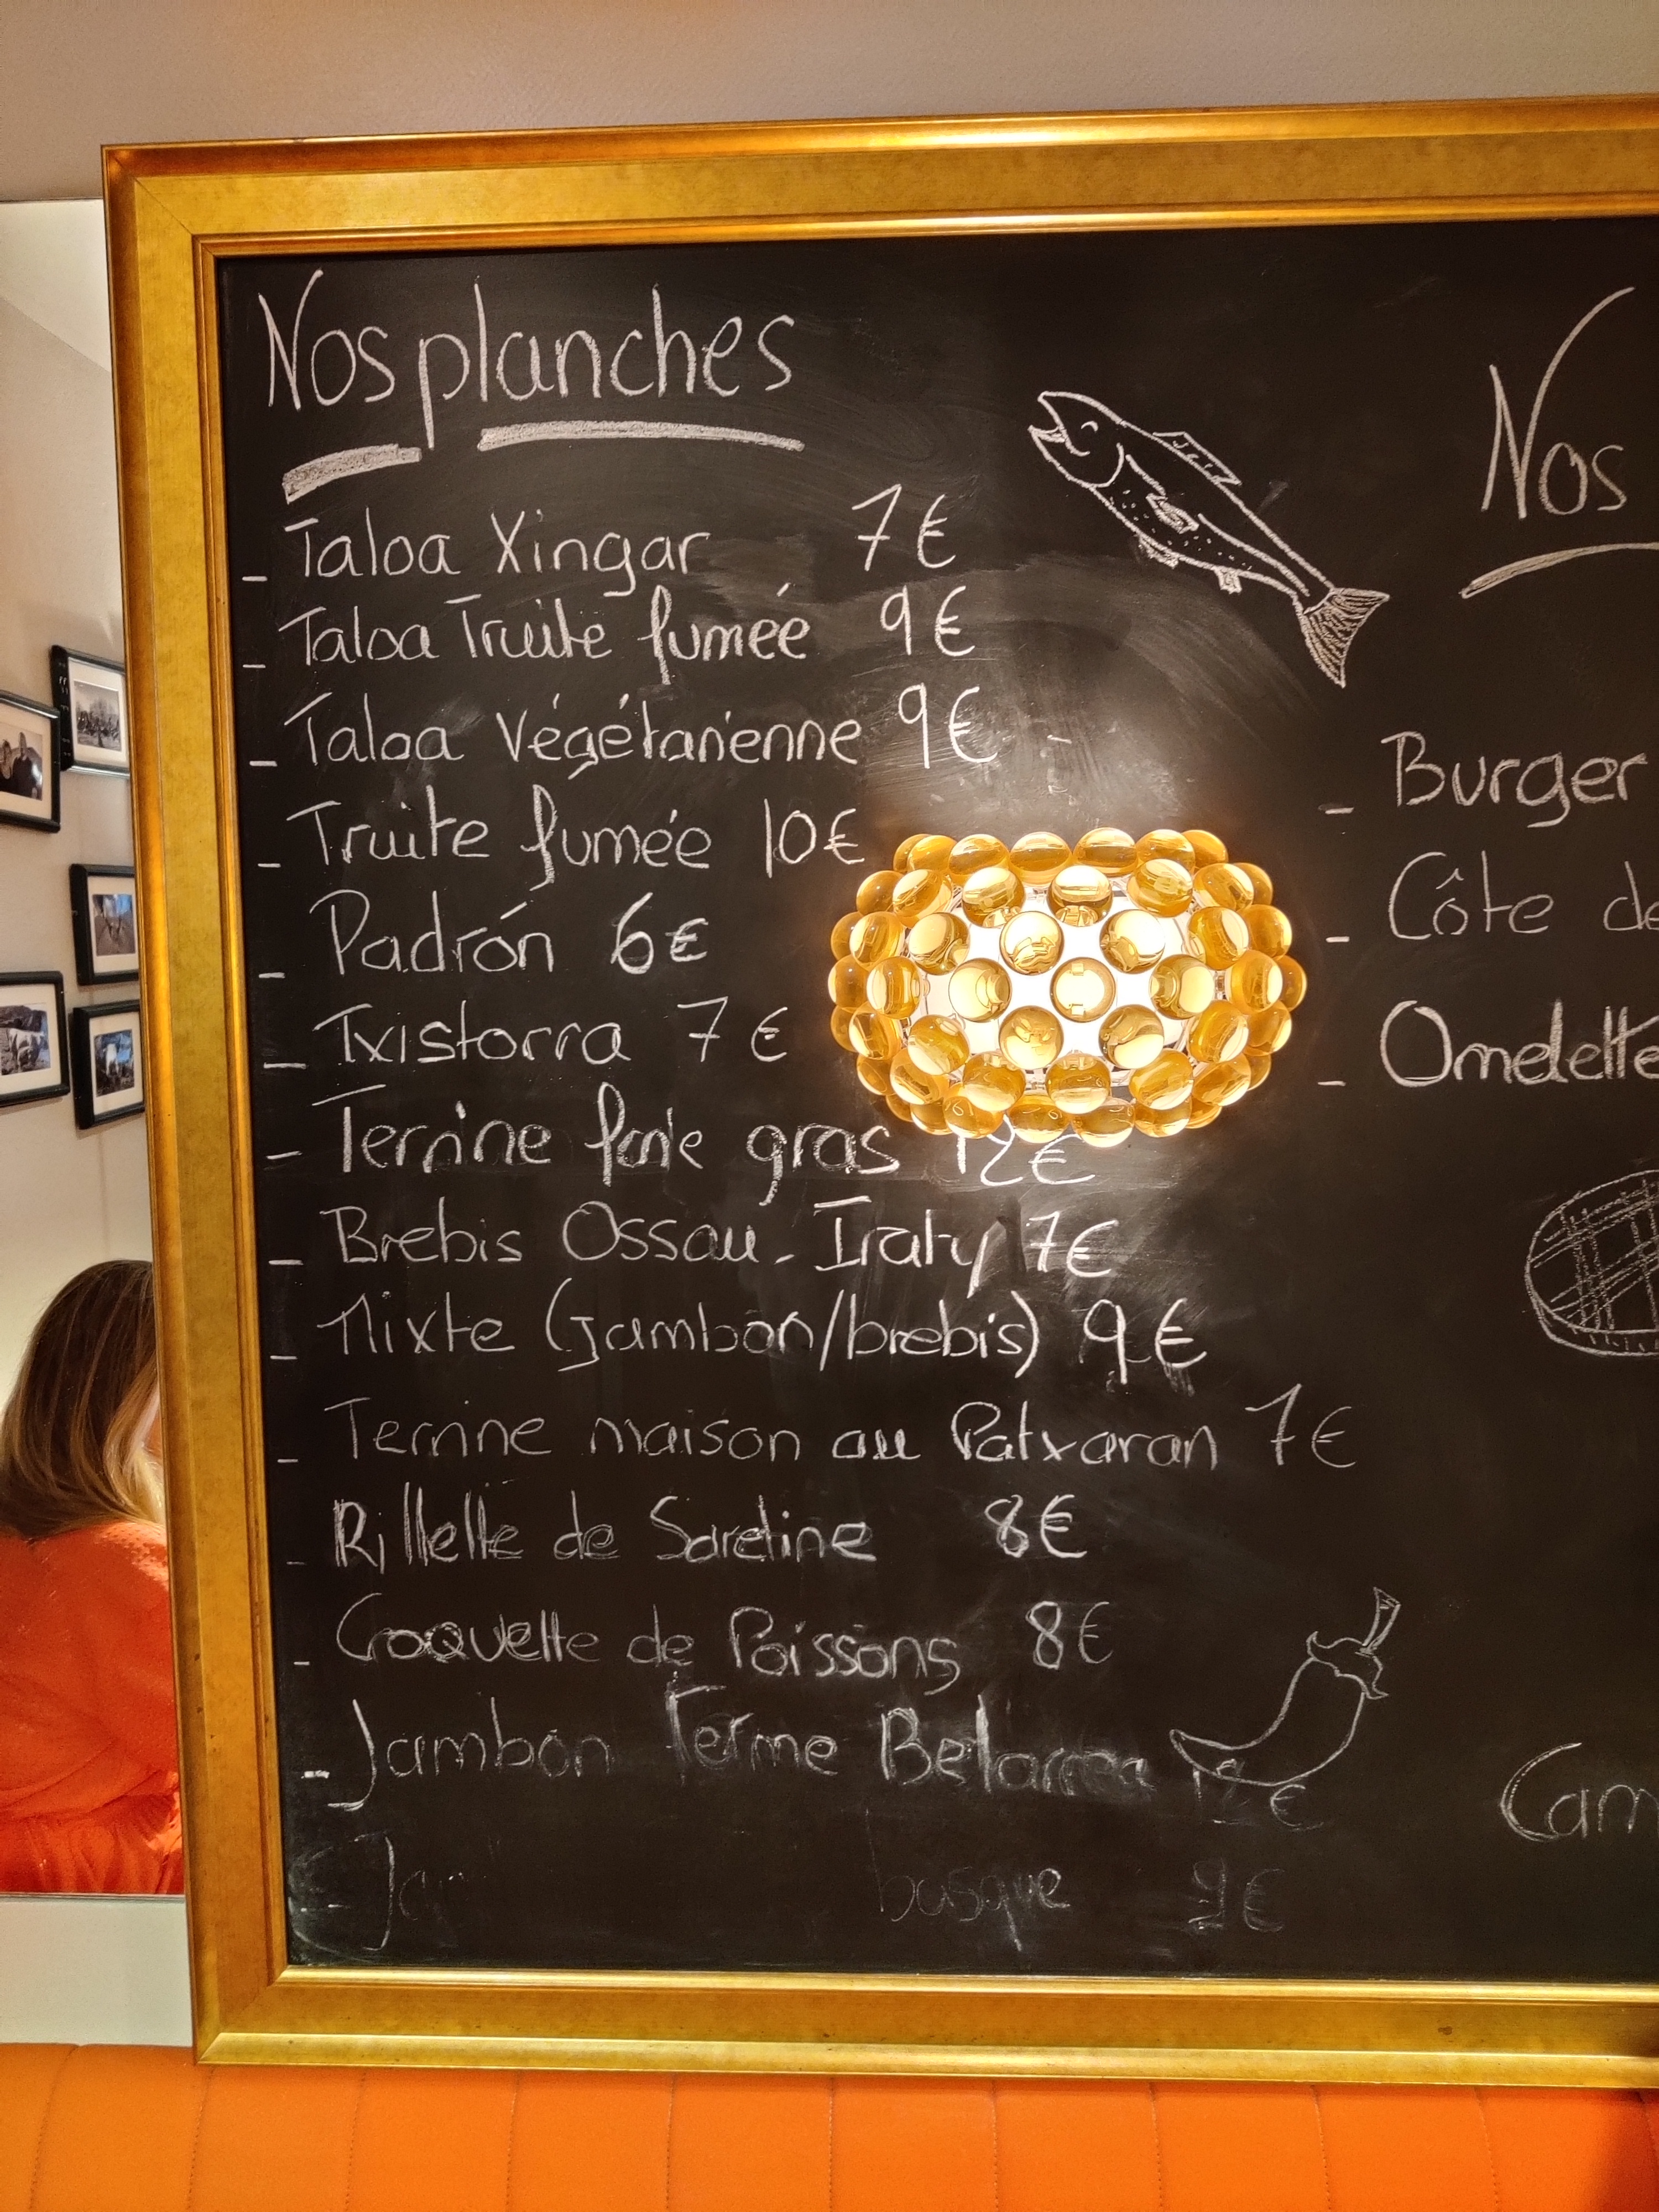 Nos planches
- Taloa Xingar 7€
- Taloa Truite fumée 9€
- Taloa Végétarienne 9€
- Truite fumée 10€
- Padrón 6€
- Txistorra 7€
- Terrine foie gras 12€
- Brebis Ossau-Iraty 7€
- Mixte (jambon/brebis) 9€
- Terrine maison au Patxaran 7€
- Rillette de Sardine 8€
- Croquette de Poissons 8€
- Jambon Ferme Belarrea 12€
basque 9€
Nos
- Burger
- Côte de
- Omelette